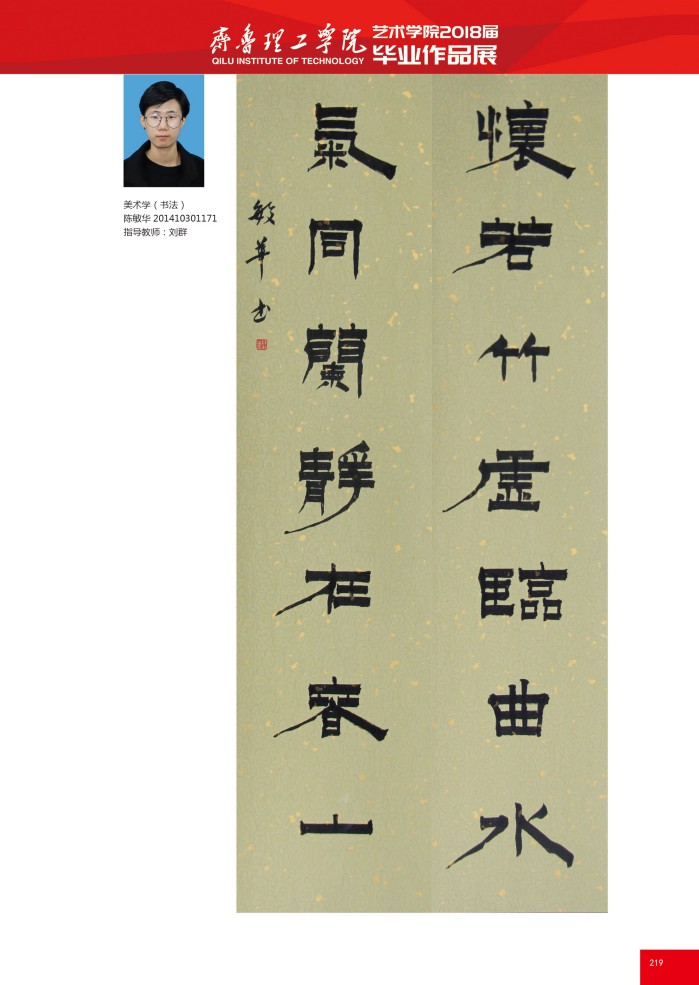 齊魯理工學院
QILU INSTITUTE OF TECHNOLOGY
艺术学院2018届
毕业作品展
美术学（书法）
陈敏华 201410301171
指导教师：刘群
懷若竹虛臨曲水
氣同蘭靜在春山
敏華书
219